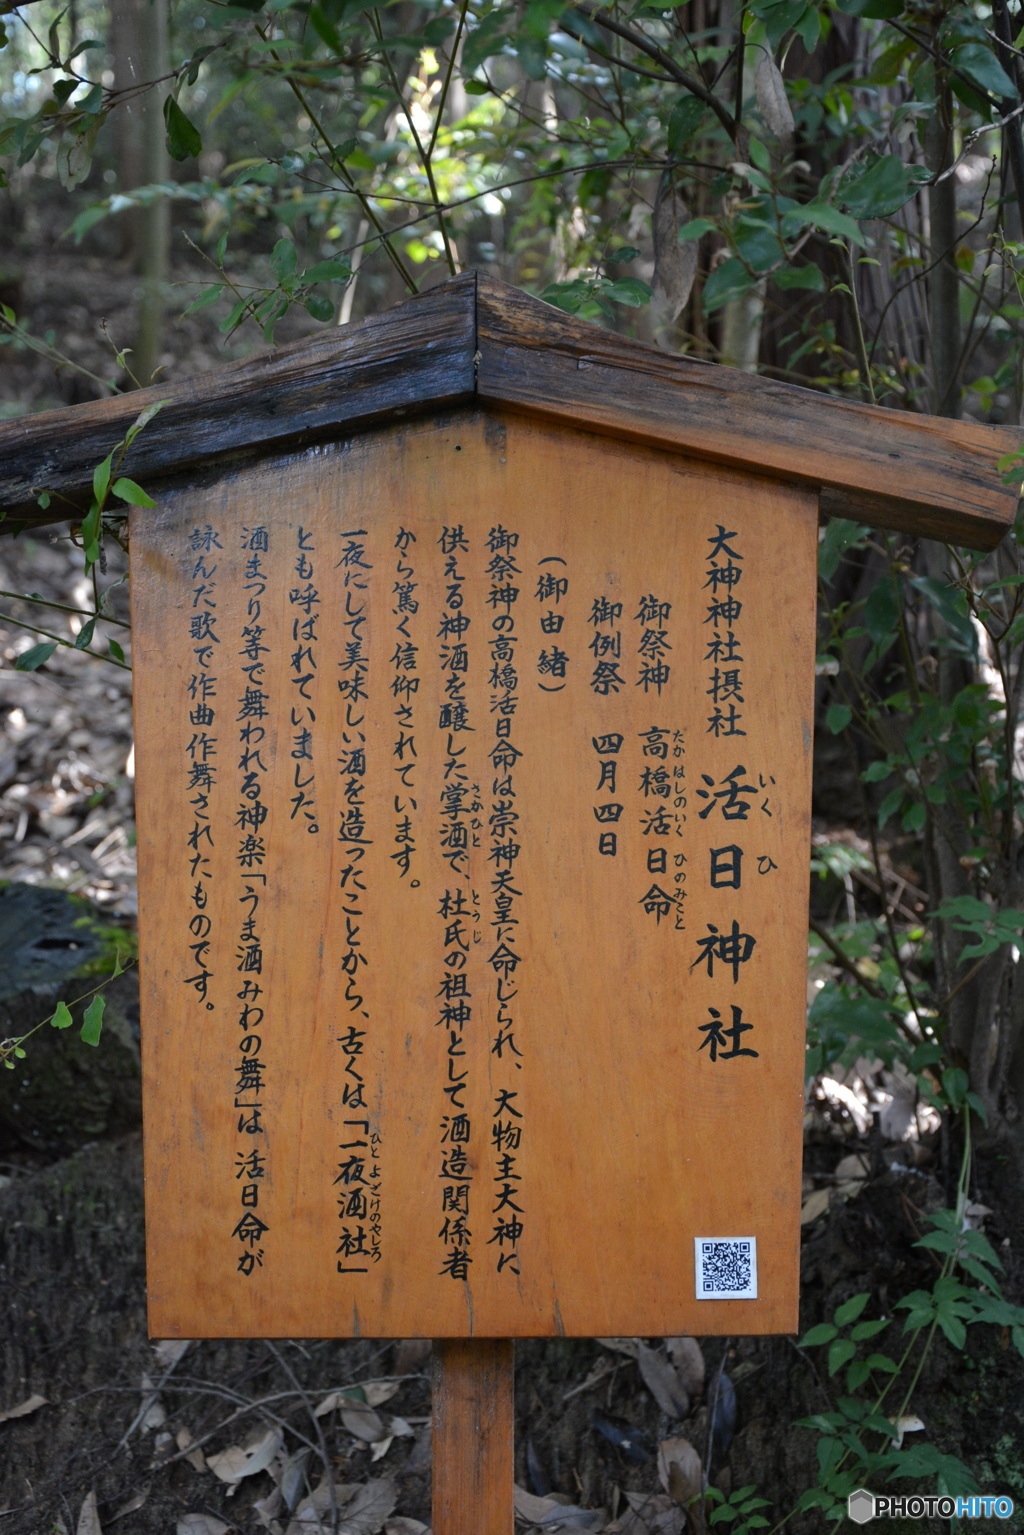 大神神社摂社 活日神社
いくひ
御祭神 高橋活日命
たかはしのいくひのみこと
御例祭 四月四日
(御由緒)
御祭神の高橋活日命は崇神天皇に命じられ、大物主大神に
供える神酒を醸した掌酒で、杜氏の祖神として酒造関係者
さかひと とうじ
から篤く信仰されています。
一夜にして美味しい酒を造ったことから、古くは「一夜酒社」
ひとよざけのやしろ
とも呼ばれていました。
酒まつり等で舞われる神楽「うま酒みわの舞」は 活日命が
詠んだ歌で作曲作舞されたものです。
PHOTOHITO